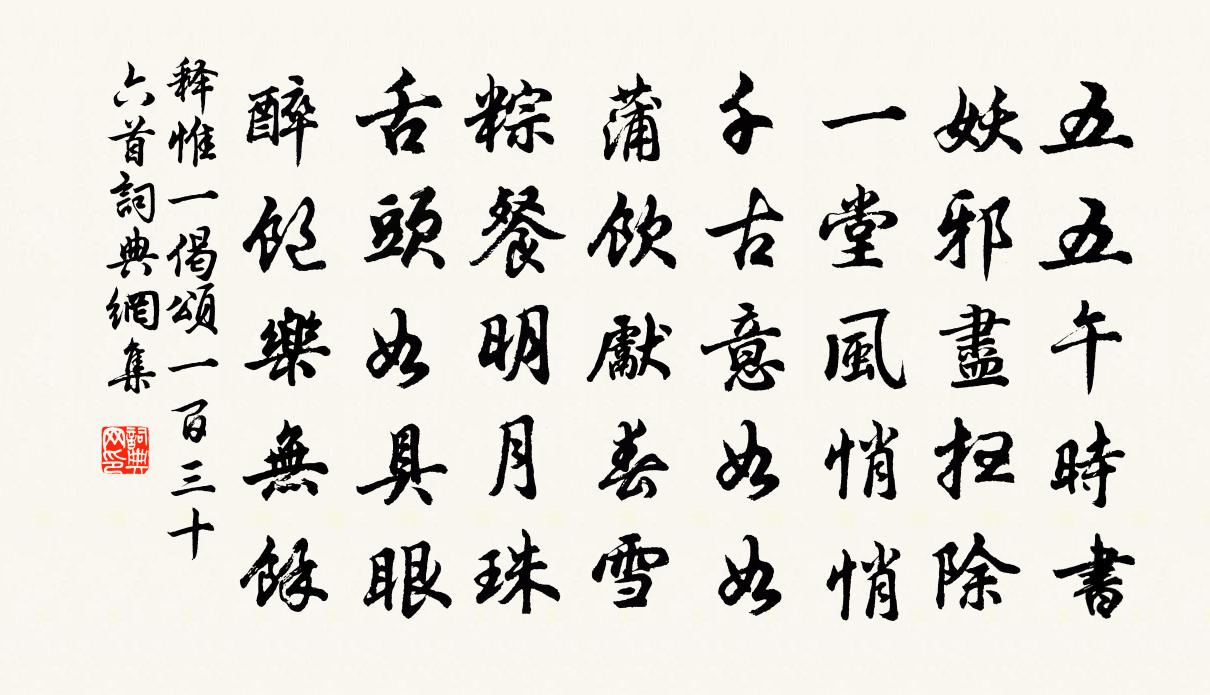 五五午時書
妖邪盡扫除
一堂風悄悄
千古意如如
蒲飲獻春雪
粽餐明月珠
舌頭如具眼
醉飽樂無餘
释惟一偈頌一百三十
六首詞典網集
詞典網印